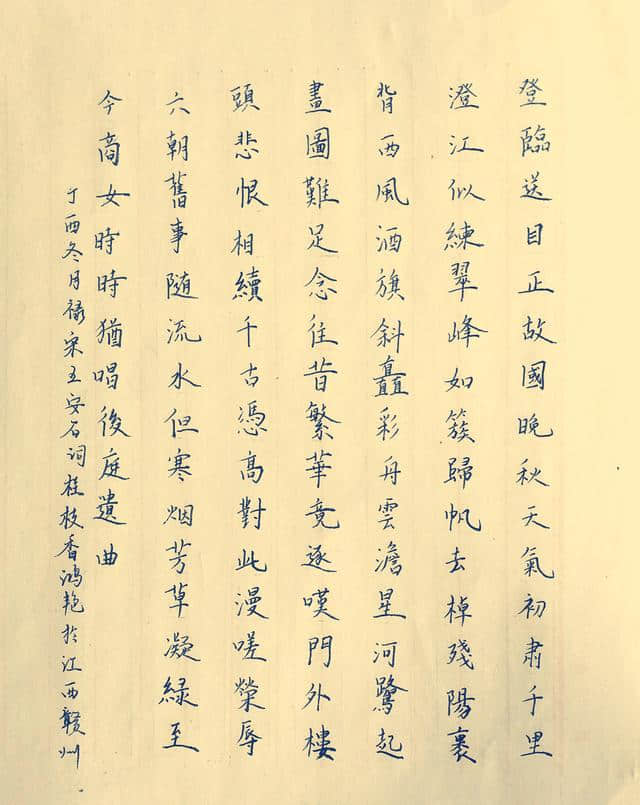 登臨送目正故國晚秋天氣初肅千里
澄江似練翠峰如簇歸帆去棹殘陽裏
背西風酒旗斜矗彩舟雲澹星河鷺起
畫圖難足念往昔繁華竟逐嘆門外樓
頭悲恨相續千古憑高對此漫嗟榮辱
六朝舊事隨流水但寒烟芳草凝綠至
今商女時時猶唱後庭遺曲
丁酉冬月禄宋王安石詞桂枝香鴻艳於江西赣州